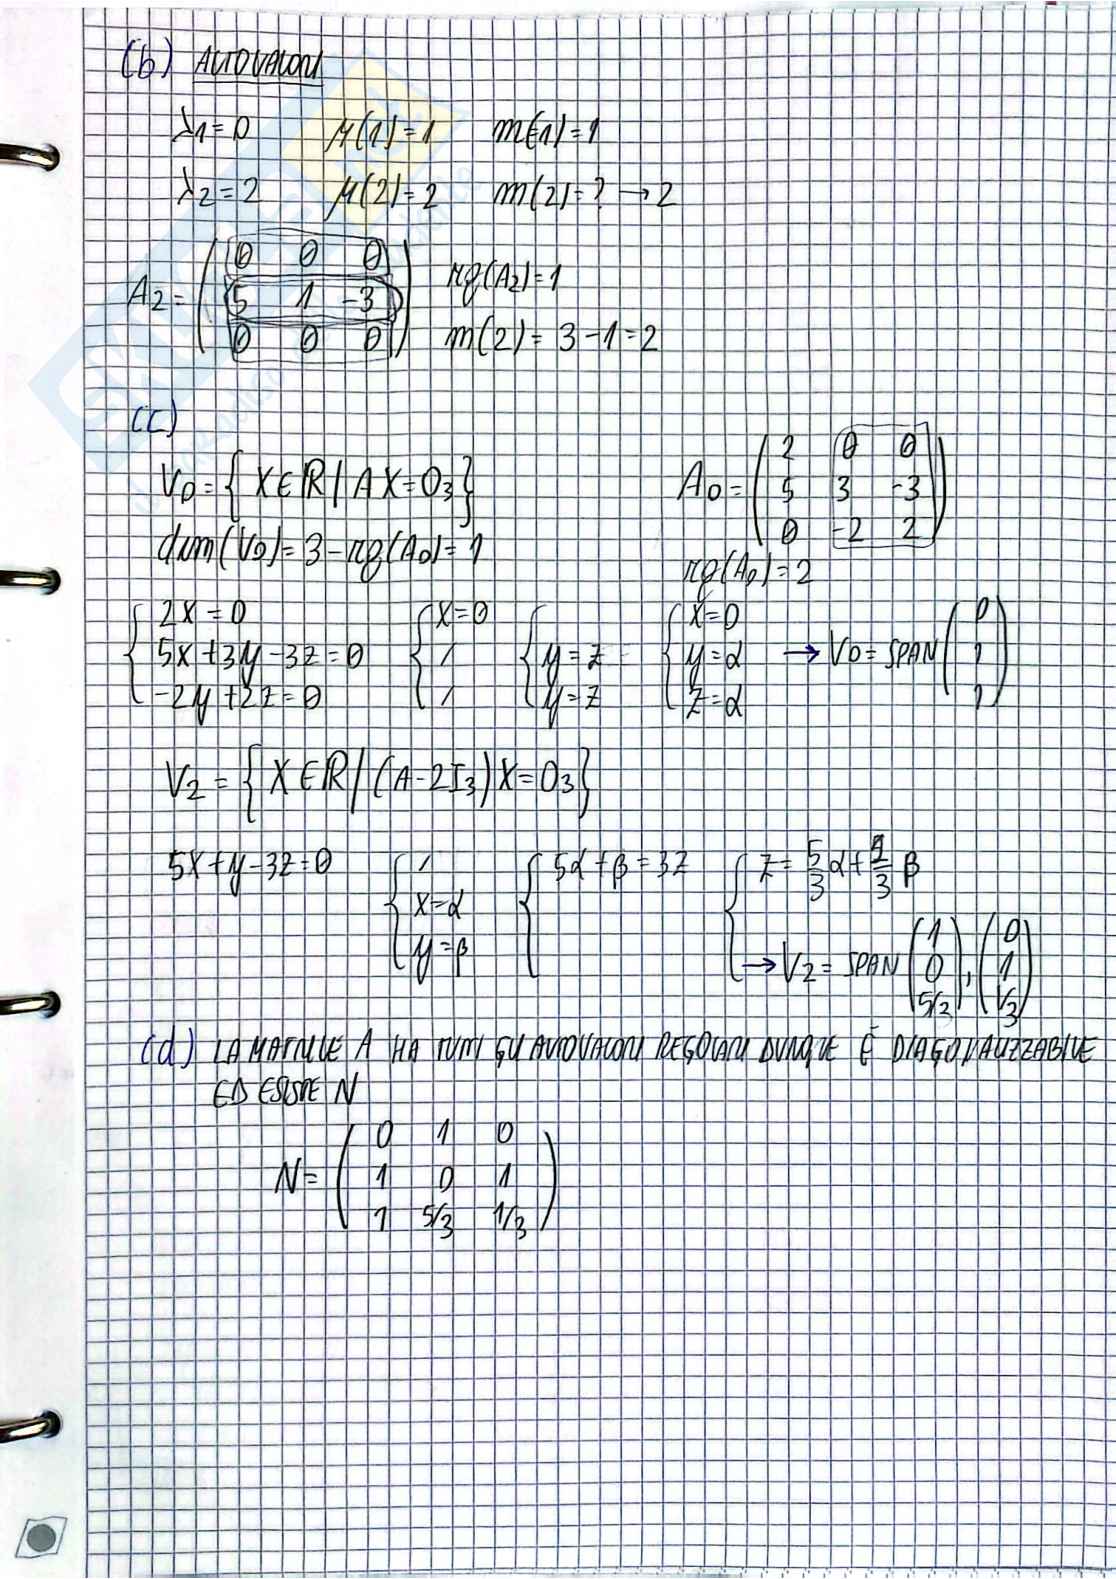 (b) AUTOVALORI
λ1=0 μ(1)=1 m(1)=1
λ2=2 μ(2)=2 m(2)=? → 2
A2= ( 0 0 0
5 1 -3
0 0 0 )
rg(A2)=1
m(2)= 3-1=2
(c)
V0={ X∈ℝ | AX=O3}
dim(V0)=3-rg(A0)=1
A0= ( 2 0 0
5 3 -3
0 -2 2 )
rg(A0)=2
{ 2x=0
5x+3y-3z=0
-2y+2z=0
{ x=0
/
/
{ y=z
y=z
{ x=0
y=α
z=α
→ V0= SPAN ( 0
1
1 )
V2= { X∈ℝ | (A-2I3)X=O3}
5x+y-3z=0
{ /
x=α
y=β
{ 5α+β=3z
{ z= 5/3 α+ 1/3 β
→ V2= SPAN ( 1
0
5/3 ), ( 0
1
1/3 )
(d) LA MATRICE A HA TUTTI GLI AUTOVALORI REGOLARI DUNQUE È DIAGONALIZZABILE
ED ESISTE N
N= ( 0 1 0
1 0 1
1 5/3 1/3 )